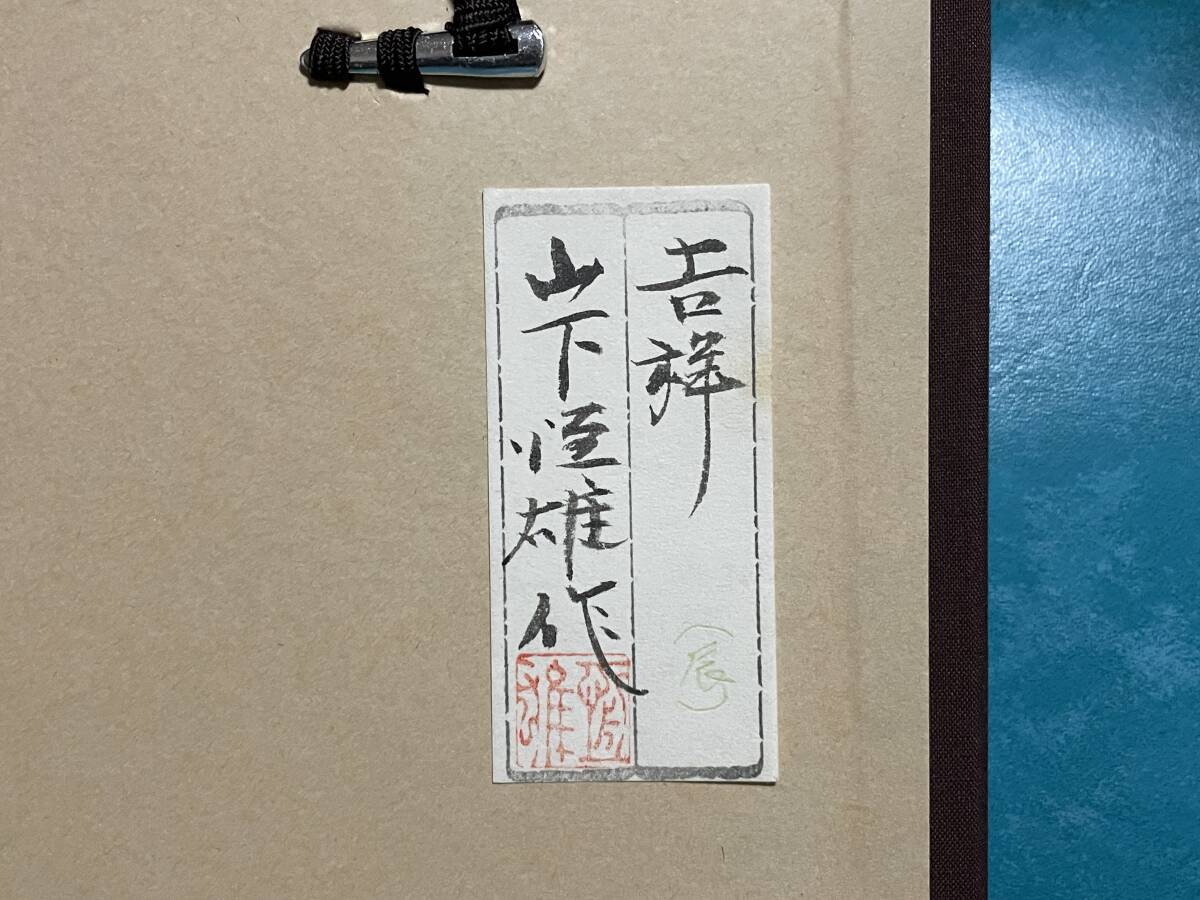 吉祥
（辰）
山下恒雄作
恒雄